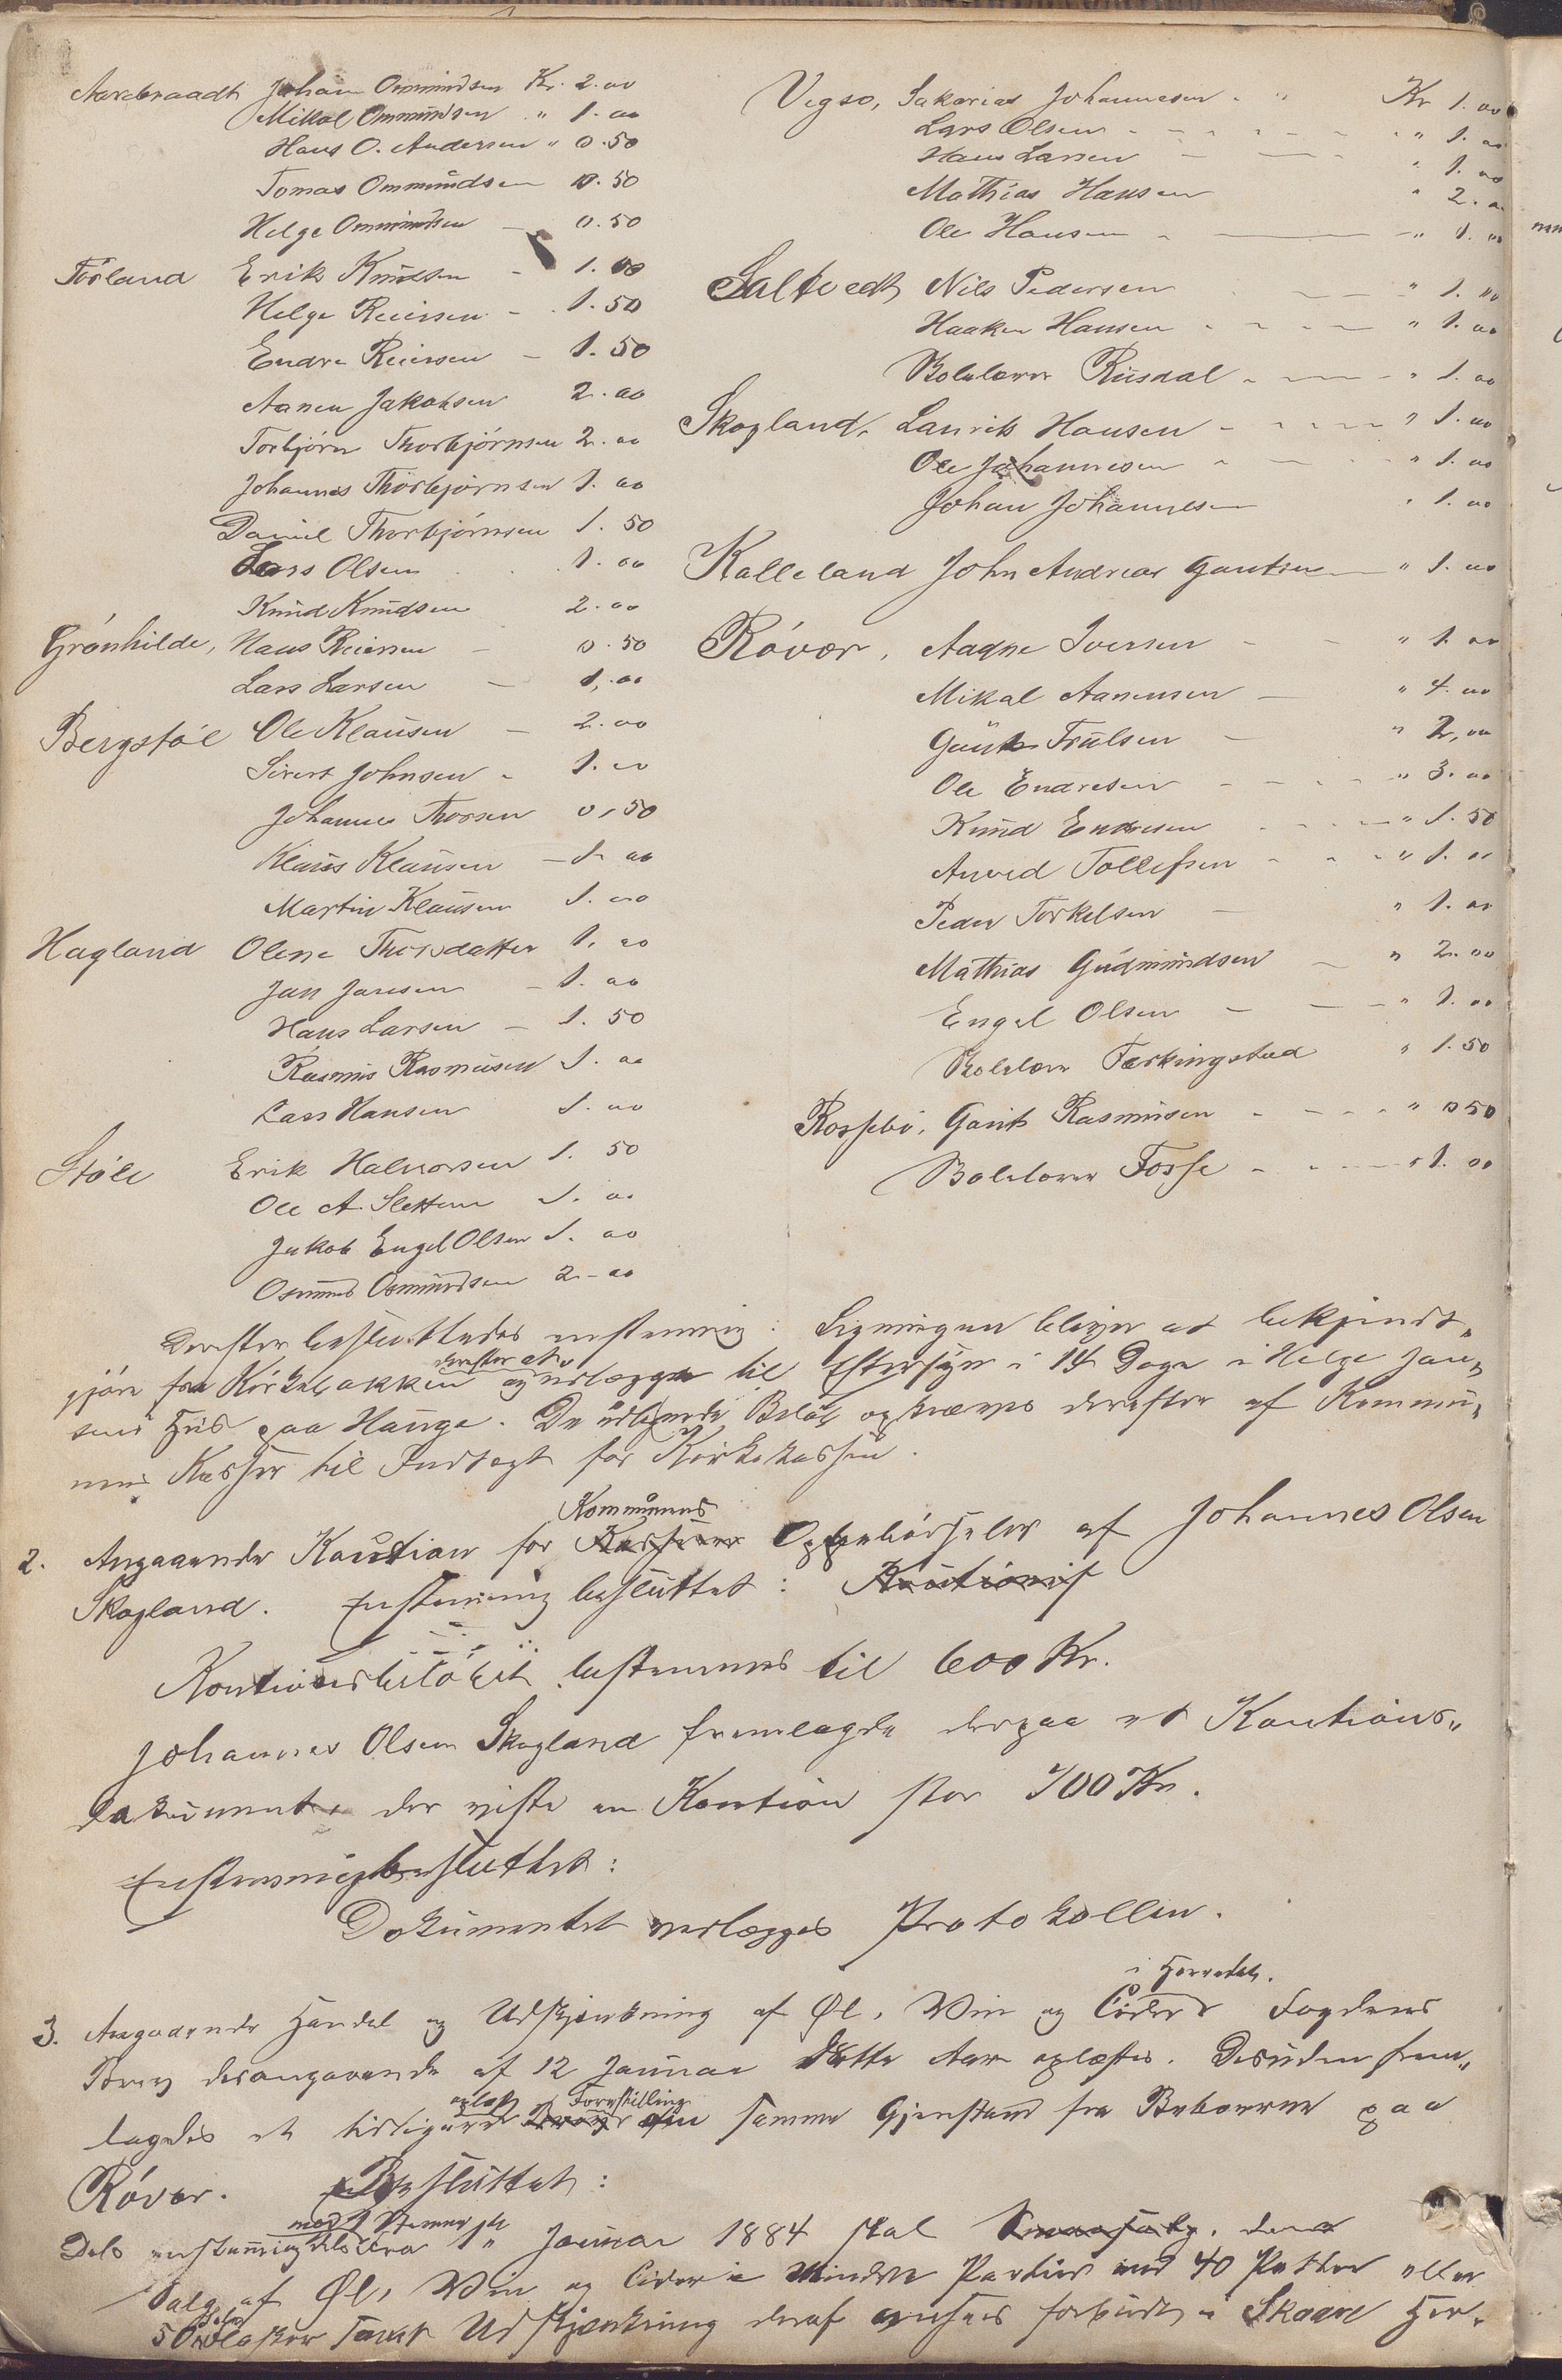 Aarebraadt Johan Ommundsen Kr. 2.00
Mikal Ommundsen " 1.00
Hans O. Andersen " 0.50
Tomas Ommundsen 0.50
Helge Ommundsen - 0.50
Förland Erik Knudsen - 1.00
Helge Reiersen - 1.50
Endre Reiersen - 1.50
Aanen Jakobsen 2.00
Torbjörn Thorbjörnsen 2.00
Johannes Thorbjörnsen 1.00
Daniel Thorbjörnsen 1.50
Lars Olsen 1.00
Knud Knudsen 2.00
Grönhilde, Hans Reiersen - 0.50
Lars Larsen - 1,.00
Bergstöl Ole Klausen - 2.00
Sivert Johnsen - 1.00
Johannes Thorsen 0,50
Klaus Klausen - 1.00
Martin Klausen 1.00
Hagland Olene Thorsdatter 1.00
Jan Jansen - 1.00
Hans Larsen - 1.50
Rasmus Rasmusen 1.00
Lars Hansen 1.00
Stöle Erik Halvorsen 1.50
Ole A. Sletten 1.00
Jakob Engel Olsen 1.00
Osmund Osmundsen 2-00
Vigsø, Sakarias Johannesen - " Kr 1.00
Lars Olsen - - - - " 1.00
Hans Larsen - - " 1.00
Mathias Hansen " 2.00
Ole Hansen - - " 1.00
Saltvedt Nils Pedersen - " 1.00
Haaken Hansen - - - " 1.00
Skolelærer Riisdal - - - " 1.00
Skogland, Laurits Hansen - - - " 1.00
Ole Johannesen - - " 1.00
Johan Johannesen " 1.00
Kalleland John Andreas Gautsen - " 1.00
Rövær, Aagne Iversen - - " 1.00
Mikal Aanensen - " 4.00
Gaute Trulsen - " 2,00
Ole Endresen - - - " 3.00
Knud Endresen - - - " 1.50
Anved Tollefsen - - - " 1.00
Peder Torkelsen - " 1.00
Mathias Gudmundsen - " 2.00
Engel Olsen - - - " 1.00
Skolelærer Færkingstad " 1.50
Rossebö, Gaut Rasmusen - - - " 0 50
Skolelærer Fosse - - - " 1.00
Derefter besluttedes enstemmig: Ligningen bliver at bekjendt„
gjöre fra Kirkebakken derefter at udlægges til Eftersyn i 14 Dage i Helge Jan„
sens Hus paa Hauge. De udlignede Belöb opkræves derefter af Kommu„
nens Kasser til Indtægt for Kirkekassen.
2. Angaaende Kaution for Kommunens Oppebörsler af Johannes Olsen
Skogland. Enstemmig besluttet: Kautionis
Kautionsbelöbet bestemmes til 600 Kr.
Johannes Olsen Skogland fremlagde derpaa et Kautions„
dokument, der viste en Kaution stor 700 Kr.
Enstemmig besluttet:
Dokumentet vedlægges Protokollen.
3. Angaaende Handel og Udskjænkning af Øl, Vin og Cider i Herredet. Fogdens
Brev desangaaende af 12 Januar dette Aar oplæstes. Desuden frem„
lagdes et tidligere oplæst Forestilling om samme Gjenstand fra Beboerne paa
Rövær. Besluttet:
Dels enstemmig dels med Stemmer fra 1ste Januar 1884 skal Smaasalg, den
Salg af Øl, Vin og Cider i Mindre Partier end 40 Potter eller
50 Flasker samt Udskjænkning deraf ansees forbudt i Skaare Her„